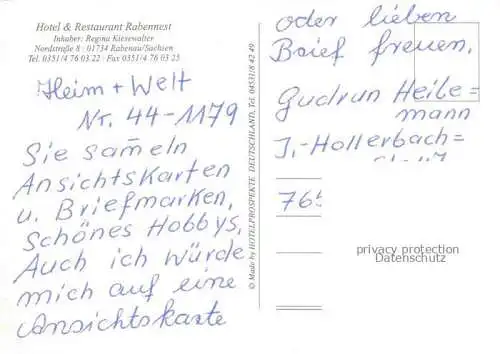 Hotel & Restaurant Rabennest
Inhaber: Regina Kiesewalter
Nordstraße 8 · 01734 Rabenau/Sachsen
Tel. 0351/4 76 03 22 · Fax 0351/4 76 03 25
Heim + Welt
Nr. 44-1179
Sie sameln
Ansichtskarten
u. Briefmarken,
Schönes Hobbys,
Auch ich würde
mich auf eine
Ansichtskarte
© Made by HOTELPROSPEKTE DEUTSCHLAND, Tel. 04531/8 42 49
oder lieben
Brief freuen.
Gudrun Heile=
mann
J.-Hollerbach=
765
privacy protection
Datenschutz